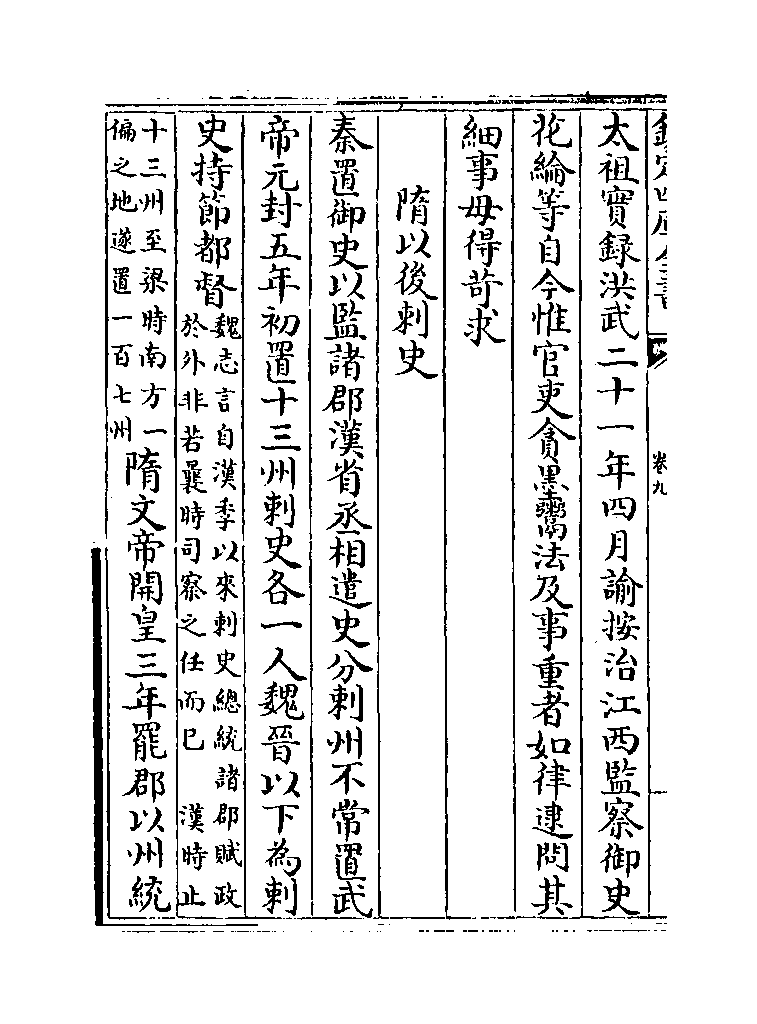 欽定四庫全書
卷九
太祖實録洪武二十一年四月諭按治江西監察御史
花綸等自今惟官吏貪墨鬻法及事重者如律逮問其
細事毋得苛求
隋以後刺史
秦置御史以監諸郡漢省丞相遣史分刺州不常置武
帝元封五年初置十三州刺史各一人魏晉以下為刺
史持節都督
魏志言自漢季以來刺史總統諸郡賦政
於外非若曩時司察之任而已 漢時止
十三州至梁時南方一
偏之地遂置一百七州
隋文帝開皇三年罷郡以州統